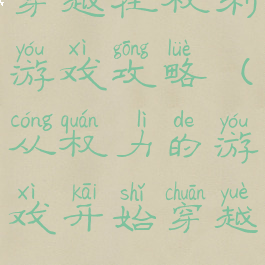 穿越在权利
yóu xì gōng lüè
游戏攻略（
cóng quán lì de yóu
从权力的游
xì kāi shǐ chuān yuè
戏开始穿越